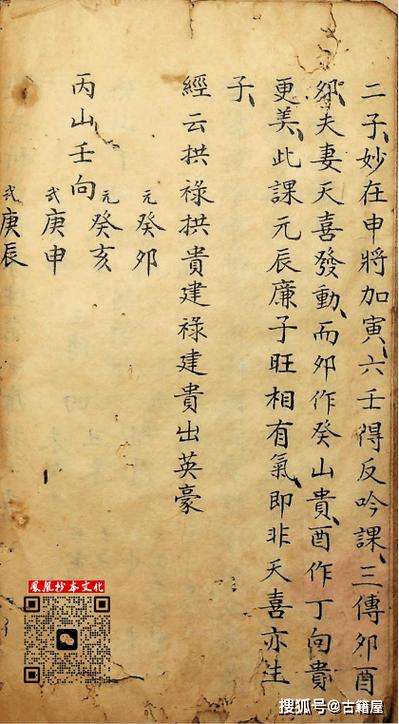 二子、妙在申將加寅、六壬得反吟課、三傳夘酉
夘、夫妻天喜發動、而夘作癸山貴、酉作丁向貴
更美、此課元辰廉子旺相有氣、即非天喜亦生
子、
經云拱祿拱貴建祿建貴出英豪
元癸夘
丙山壬向 元癸亥
弍庚申
弍庚辰
鳳凰抄本文化
搜狐号@古籍屋